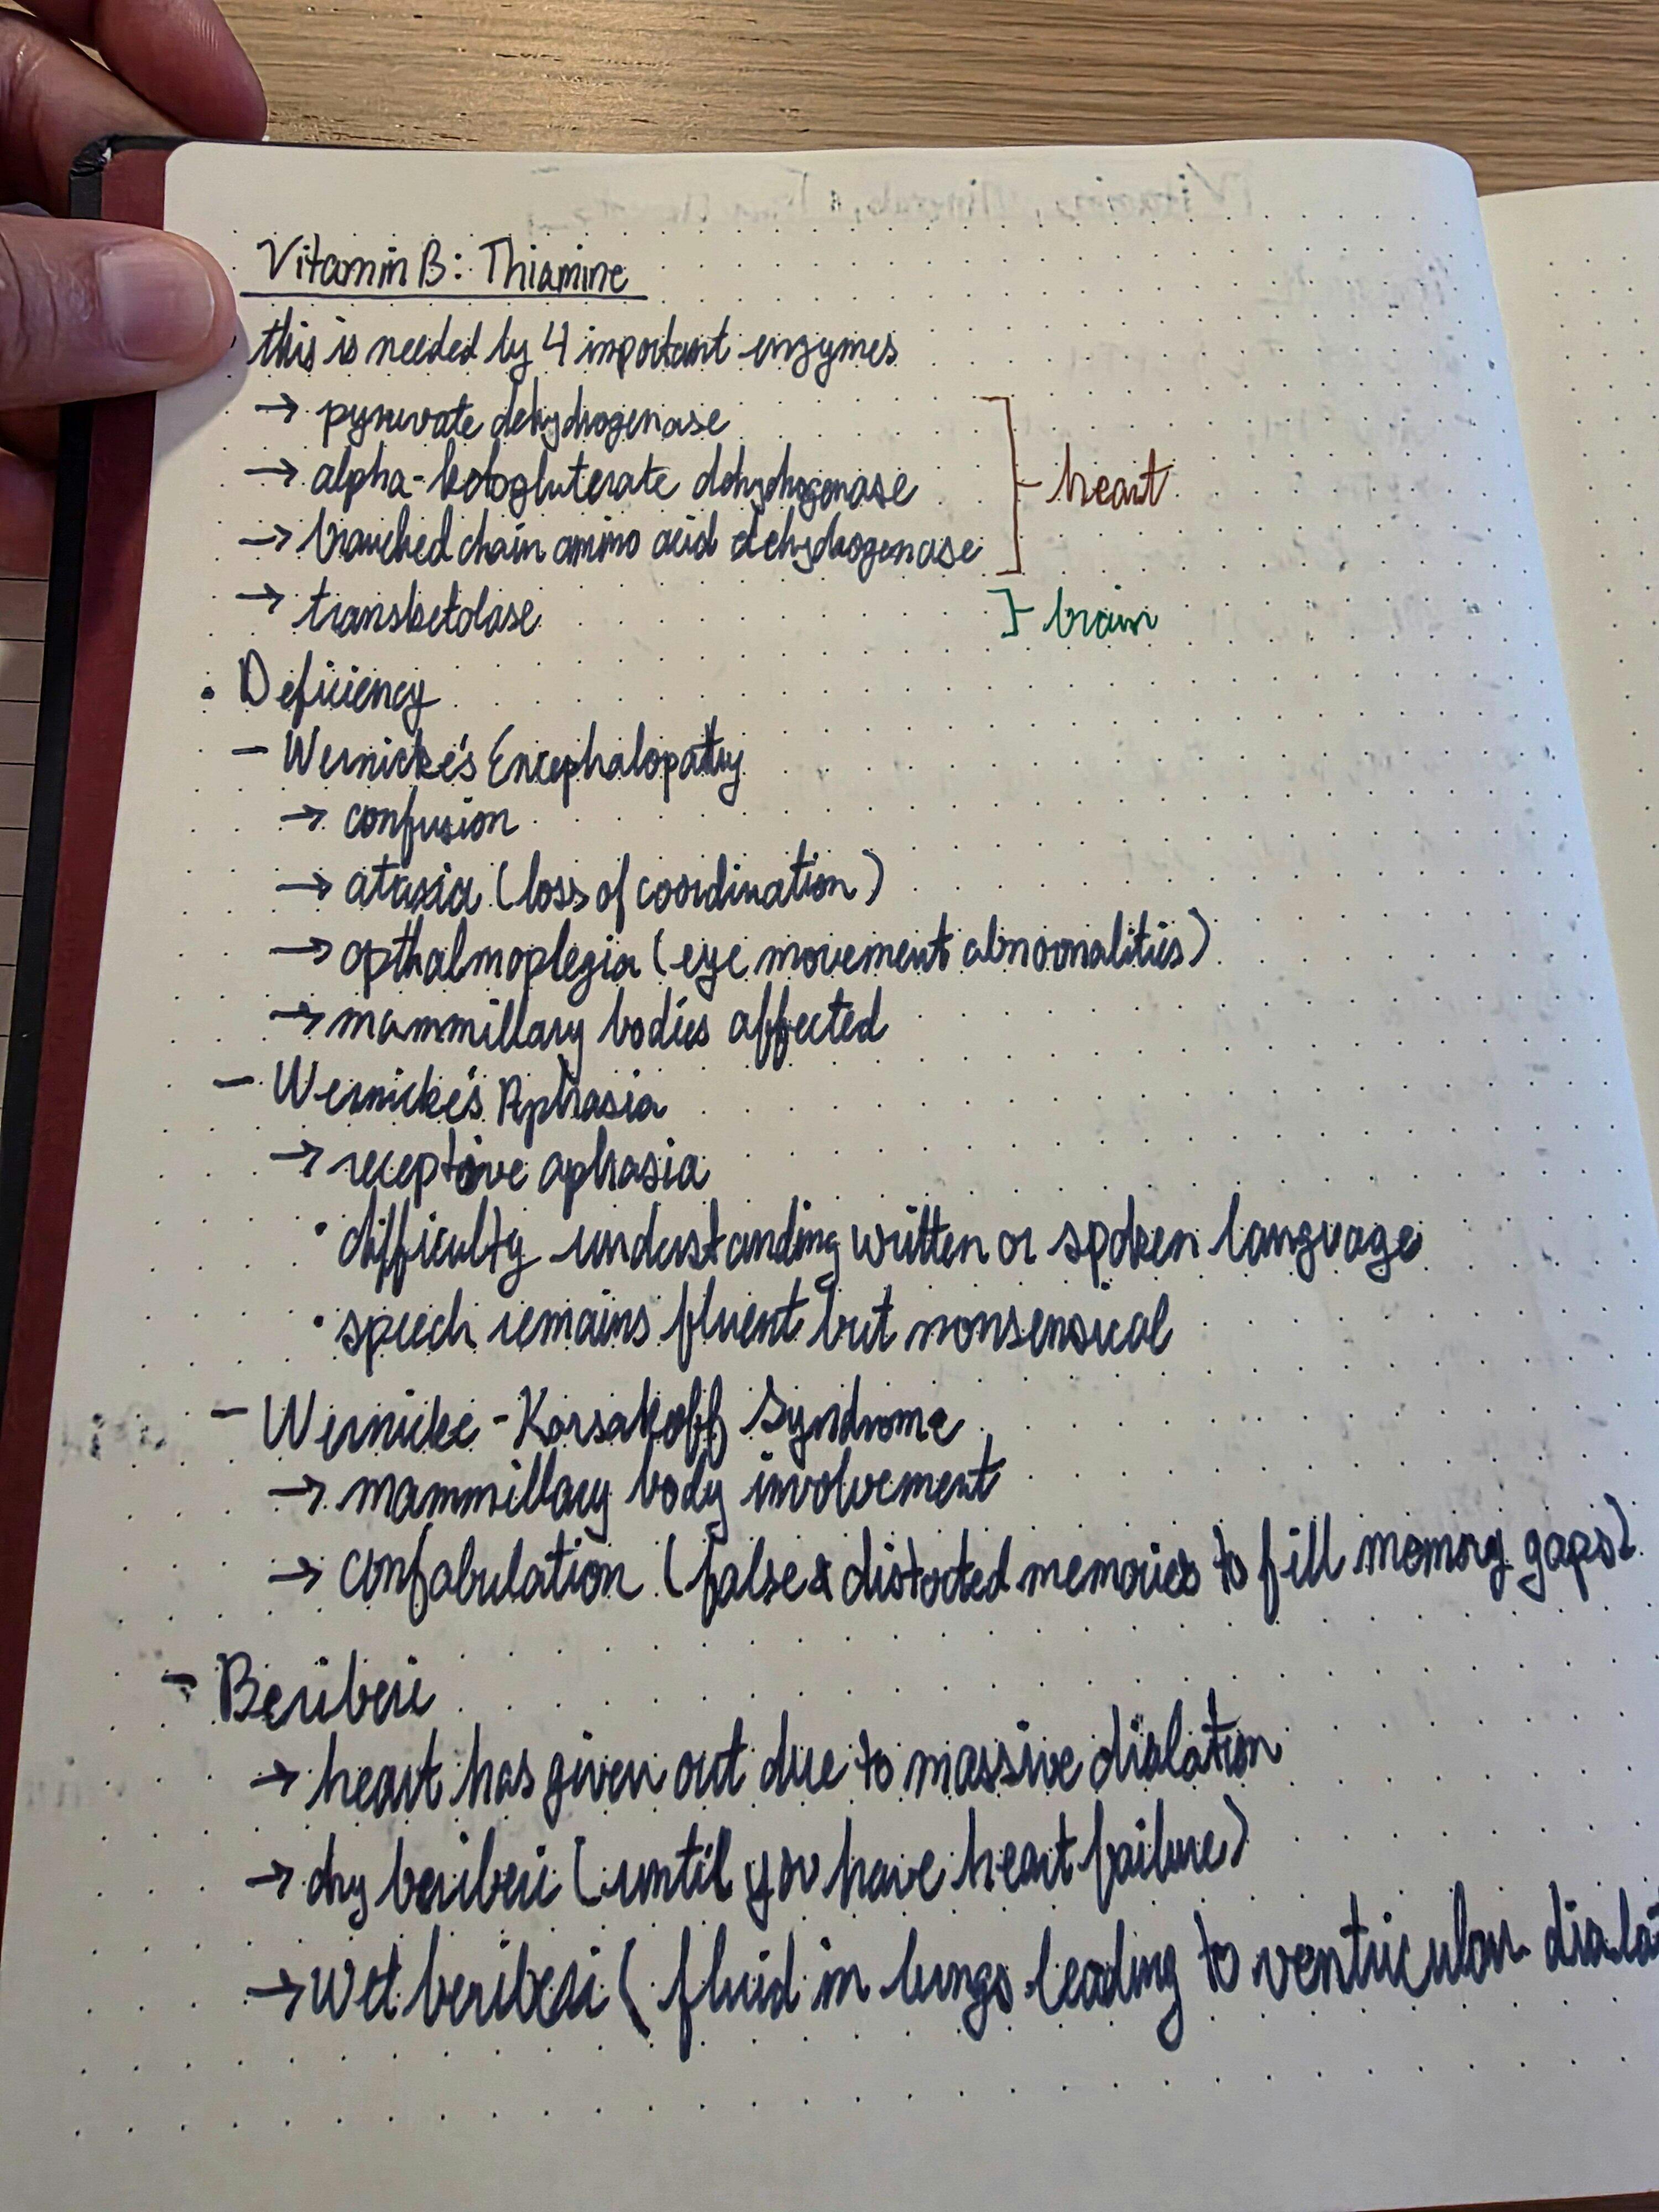 Vitamin B: Thiamine
this is needed by 4 important enzymes
→ pyruvate dehydrogenase
→ alpha-ketogluterate dehydrogenase
→ branched chain amino acid dehydrogenase
] heart
→ transketolase
] brain
• Deficiency
- Wernicke's Encephalopathy
→ confusion
→ ataxia (loss of coordination)
→ opthalmoplegia (eye movement abnormalities)
→ mammillary bodies affected
- Wernicke's Aphasia
→ receptive aphasia
• difficulty understanding written or spoken language
• speech remains fluent but nonsensical
- Wernicke-Korsakoff Syndrome
→ mammillary body involvement
→ confabulation (false & distorted memories to fill memory gaps)
- Beriberi
→ heart has given out due to massive dialation
→ dry beriberi (until you have heart failure)
→ wet beriberi (fluid in lungs leading to ventricular dialat